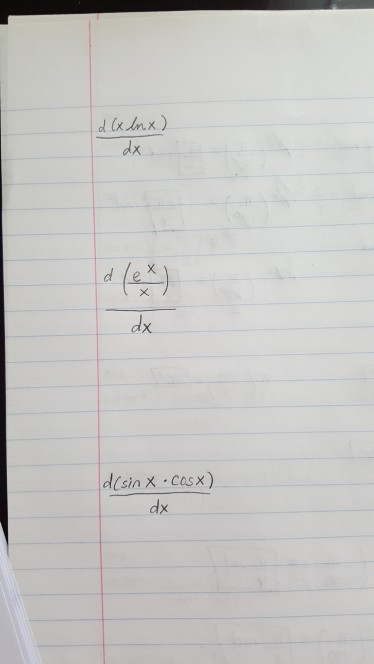 d(x lnx)
dx
d (e^x/x)
dx
d(sin x · cosx)
dx